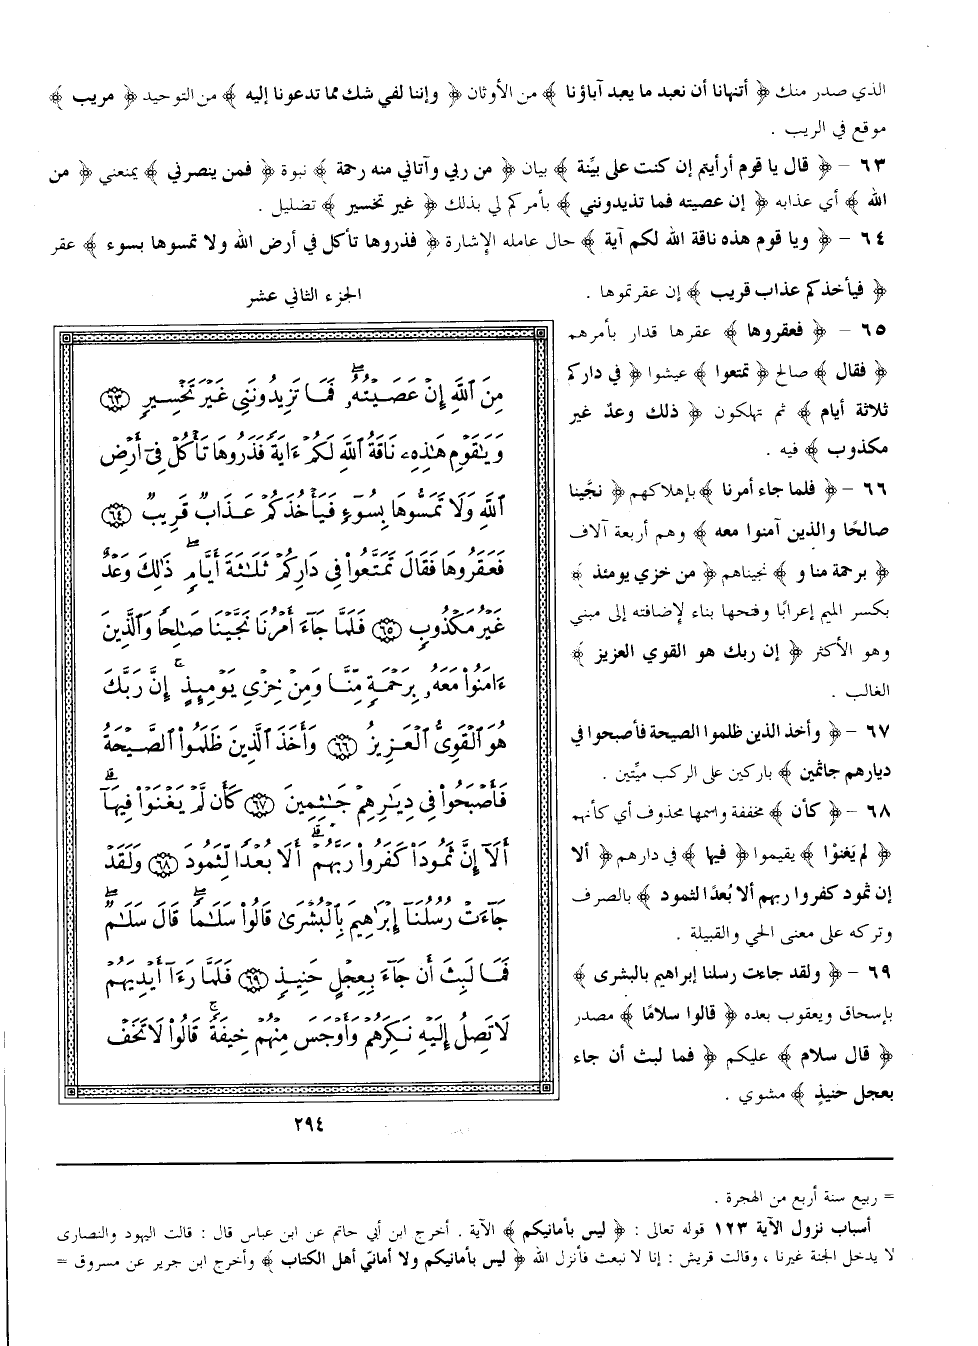 الذي صدر منك ﴿ أتنهانا أن نعبد ما يعبد آباؤنا ﴾ من الأوثان ﴿ وإننا لفي شك مما تدعونا إليه ﴾ من التوحيد ﴿ مريب ﴾
موقع في الريب .
٦٣ – ﴿ قال يا قوم أرأيتم إن كنت على بيِّنة ﴾ بيان ﴿ من ربي وآتاني منه رحمة ﴾ نبوة ﴿ فمن ينصرني ﴾ يمنعني ﴿ من
الله ﴾ أي عذابه ﴿ إن عصيته فما تذيدونني ﴾ بأمركم لي بذلك ﴿ غير تخسير ﴾ تضليل .
٦٤ – ﴿ ويا قوم هذه ناقة الله لكم آية ﴾ حال عامله الإشارة ﴿ فذروها تأكل في أرض الله ولا تمسوها بسوء ﴾ عقر
﴿ فيأخذكم عذاب قريب ﴾ إن عقرتموها .
٦٥ – ﴿ فعقروها ﴾ عقرها قدار بأمرهم
﴿ فقال ﴾ صالح ﴿ تمتعوا ﴾ عيشوا ﴿ في داركم
ثلاثة أيام ﴾ ثم تهلكون ﴿ ذلك وعدٌ غير
مكذوب ﴾ فيه .
٦٦ – ﴿ فلما جاء أمرنا ﴾ بإهلاكهم ﴿ نجَّينا
صالحًا والذين آمنوا معه ﴾ وهم أربعة آلاف
﴿ برحمة منا و ﴾ نجيناهم ﴿ من خزي يومئذ ﴾
بكسر الميم إعرابًا وفتحها بناء لإضافته إلى مبني
وهو الأكثر ﴿ إن ربك هو القوي العزيز ﴾
الغالب .
٦٧ – ﴿ وأخذ الذين ظلموا الصيحة فأصبحوا في
ديارهم جاثمين ﴾ باركين على الركب ميِّتين .
٦٨ – ﴿ كأن ﴾ مخففة واسمها محذوف أي كأنهم
﴿ لم يَغنوْا ﴾ يقيموا ﴿ فيها ﴾ في دارهم ﴿ ألا
إن ثمود كفروا ربهم ألا بُعدًا لثمود ﴾ بالصرف
وتركه على معنى الحي والقبيلة .
٦٩ – ﴿ ولقد جاءت رسلنا إبراهيم بالبشرى ﴾
بإسحاق ويعقوب بعده ﴿ قالوا سلامًا ﴾ مصدر
﴿ قال سلام ﴾ عليكم ﴿ فما لبث أن جاء
بعجل حنيذٍ ﴾ مشوي .
الجزء الثاني عشر
مِنَ ٱللَّهِ إِنۡ عَصَيۡتُهُۥۖ فَمَا تَزِيدُونَنِي غَيۡرَ تَخۡسِيرٖ ٦٣
وَيَٰقَوۡمِ هَٰذِهِۦ نَاقَةُ ٱللَّهِ لَكُمۡ ءَايَةٗۖ فَذَرُوهَا تَأۡكُلۡ فِيٓ أَرۡضِ
ٱللَّهِ وَلَا تَمَسُّوهَا بِسُوٓءٖ فَيَأۡخُذَكُمۡ عَذَابٞ قَرِيبٞ ٦٤
فَعَقَرُوهَا فَقَالَ تَمَتَّعُواْ فِي دَارِكُمۡ ثَلَٰثَةَ أَيَّامٖۖ ذَٰلِكَ وَعۡدٌ
غَيۡرُ مَكۡذُوبٖ ٦٥ فَلَمَّا جَآءَ أَمۡرُنَا نَجَّيۡنَا صَٰلِحٗا وَٱلَّذِينَ
ءَامَنُواْ مَعَهُۥ بِرَحۡمَةٖ مِّنَّا وَمِنۡ خِزۡيِ يَوۡمِئِذٍۚ إِنَّ رَبَّكَ
هُوَ ٱلۡقَوِيُّ ٱلۡعَزِيزُ ٦٦ وَأَخَذَ ٱلَّذِينَ ظَلَمُواْ ٱلصَّيۡحَةُ
فَأَصۡبَحُواْ فِي دِيَٰرِهِمۡ جَٰثِمِينَ ٦٧ كَأَن لَّمۡ يَغۡنَوۡاْ فِيهَآۗ
أَلَآ إِنَّ ثَمُودَاْ كَفَرُواْ رَبَّهُمۡۗ أَلَا بُعۡدٗا لِّثَمُودَ ٦٨ وَلَقَدۡ
جَآءَتۡ رُسُلُنَآ إِبۡرَٰهِيمَ بِٱلۡبُشۡرَىٰ قَالُواْ سَلَٰمٗاۖ قَالَ سَلَٰمٞۖ
فَمَا لَبِثَ أَن جَآءَ بِعِجۡلٍ حَنِيذٖ ٦٩ فَلَمَّا رَءَآ أَيۡدِيَهُمۡ
لَا تَصِلُ إِلَيۡهِ نَكِرَهُمۡ وَأَوۡجَسَ مِنۡهُمۡ خِيفَةٗۚ قَالُواْ لَا تَخَفۡ
٢٩٤
= ربيع سنة أربع من الهجرة .
أسباب نزول الآية ١٢٣ قوله تعالى : ﴿ ليس بأمانيكم ﴾ الآية . أخرج ابن أبي حاتم عن ابن عباس قال : قالت اليهود والنصارى
لا يدخل الجنة غيرنا ، وقالت قريش : إنا لا نبعث فأنزل الله ﴿ ليس بأمانيكم ولا أمانيّ أهل الكتاب ﴾ وأخرج ابن جرير عن مسروق =